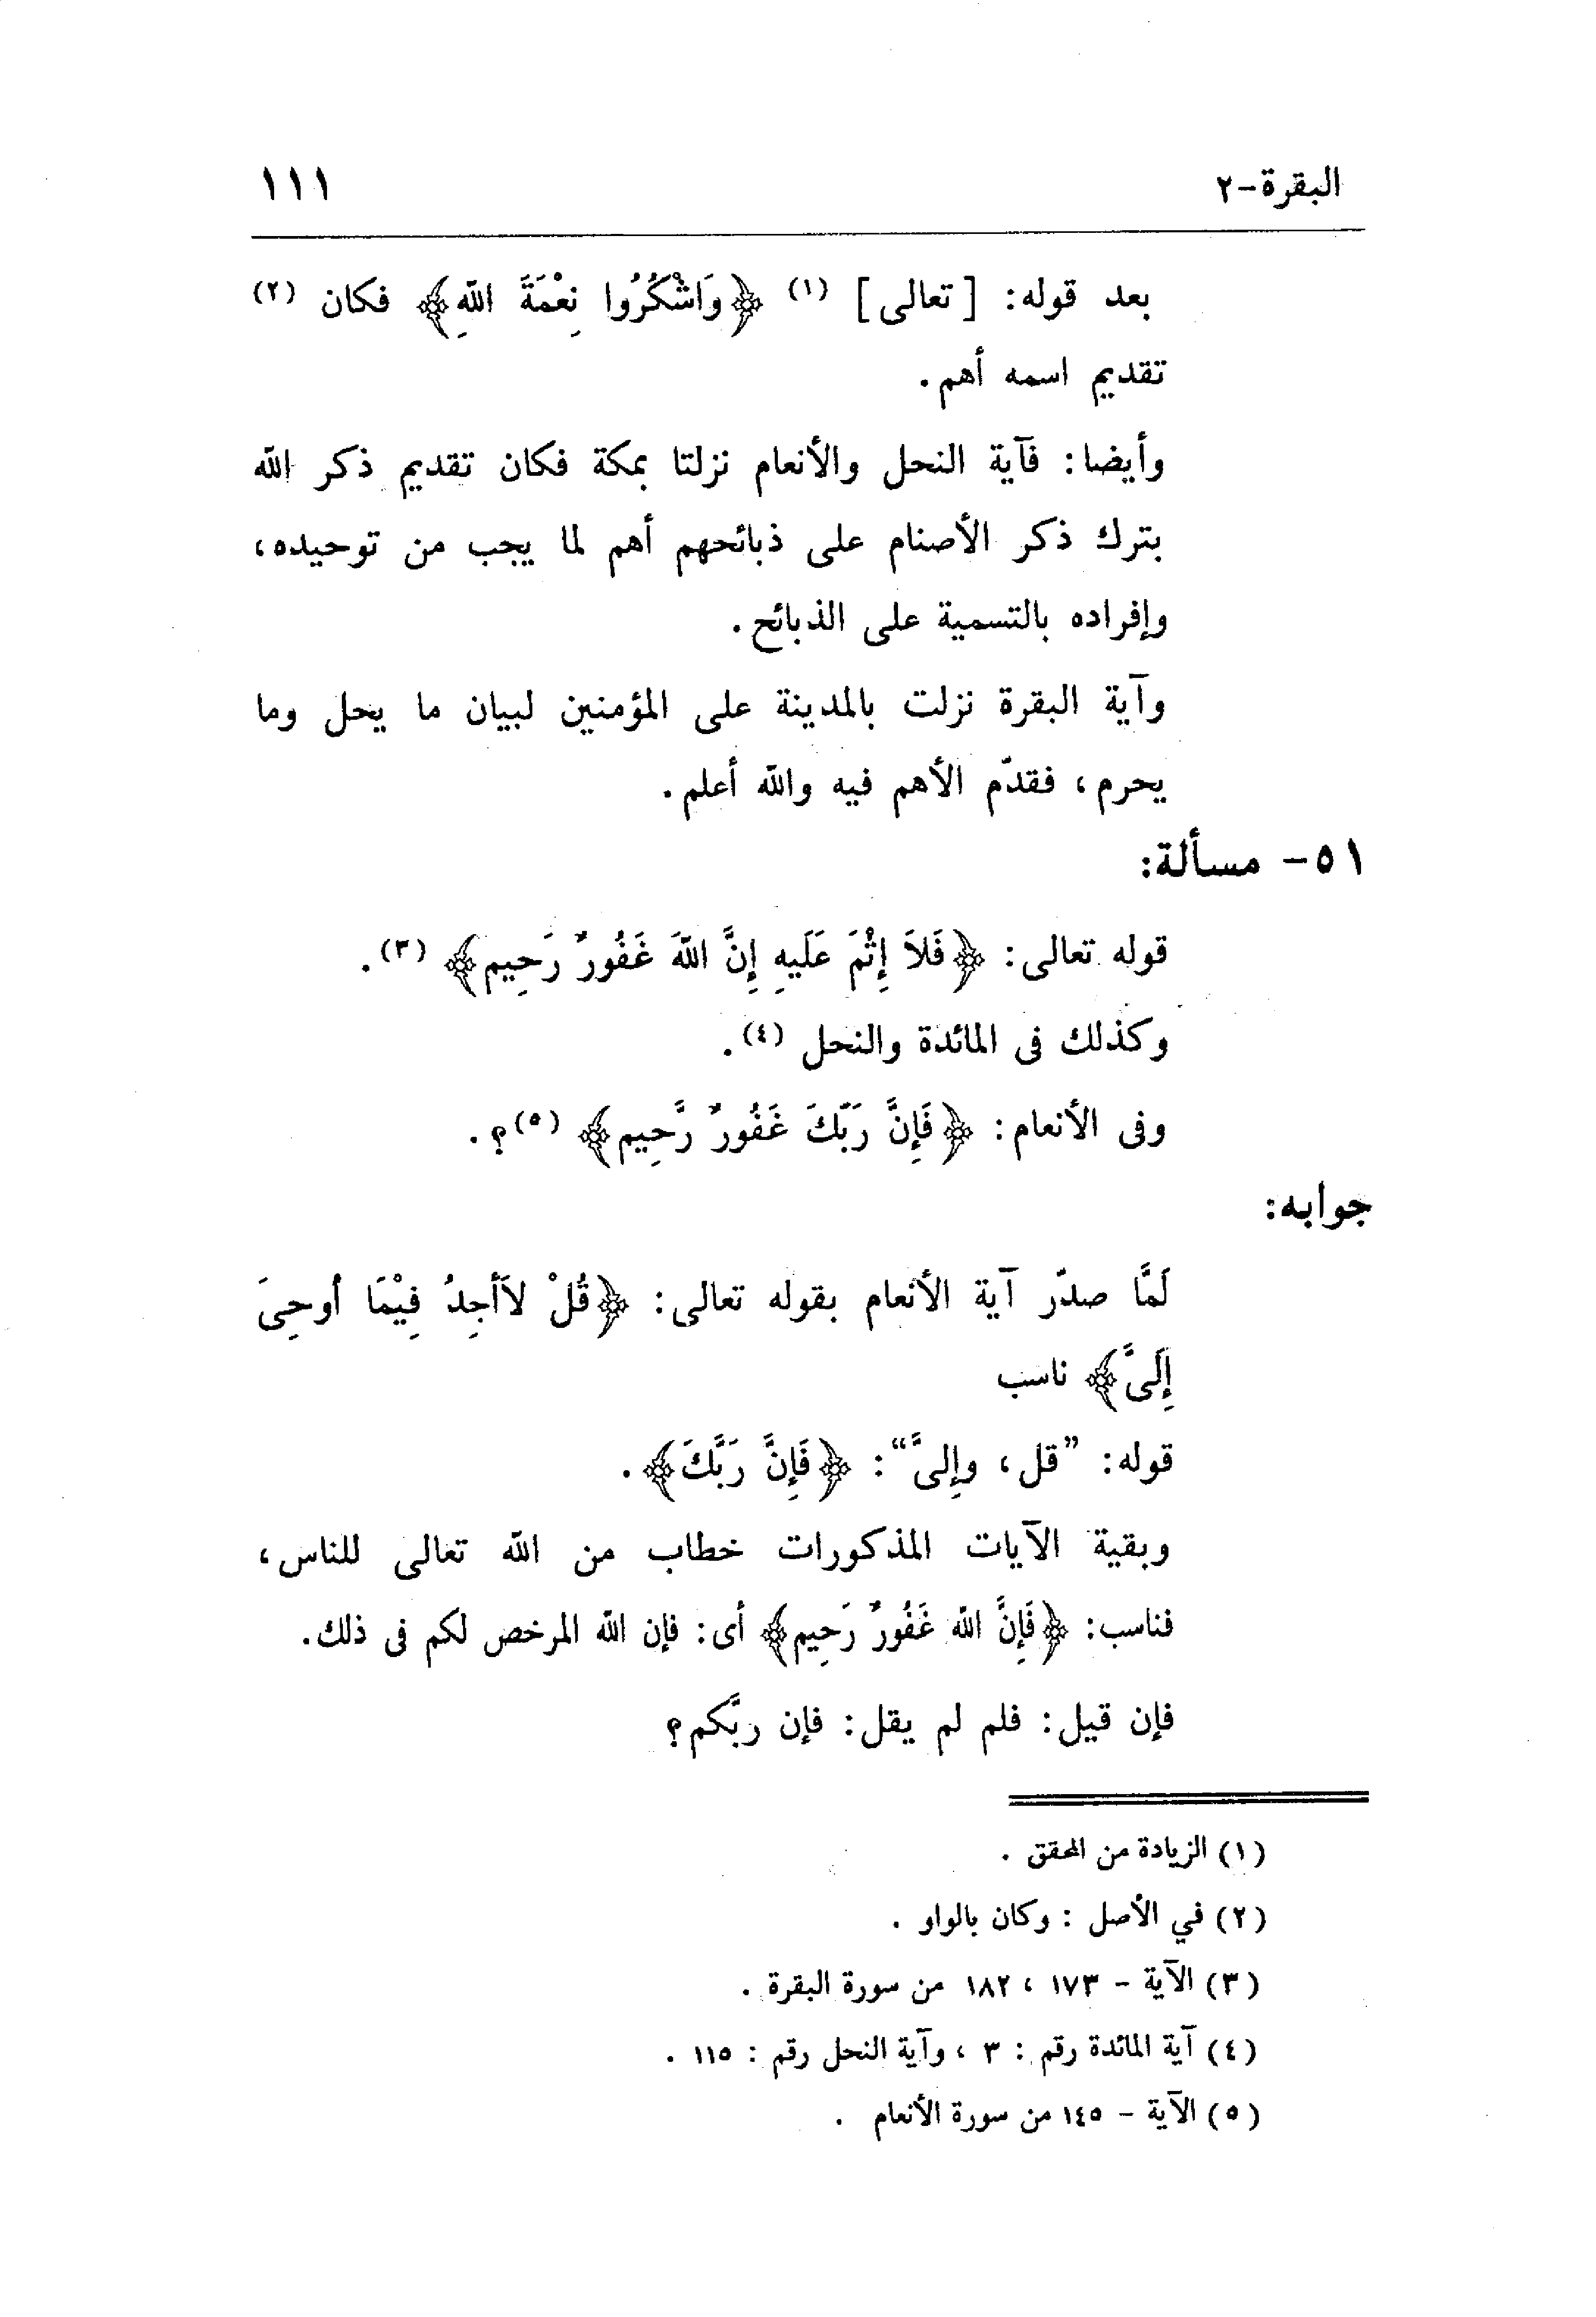 البقرة-٢ ١١١
بعد قوله: [تعالى] (١) ﴿وَاشْكُرُوا نِعْمَةَ اللَّهِ﴾ فكان (٢)
تقديم اسمه أهم.
وأيضا: فآية النحل والأنعام نزلتا بمكة فكان تقديم ذكر الله
بترك ذكر الأصنام على ذبائحهم أهم لما يجب من توحيده،
وإفراده بالتسمية على الذبائح.
وآية البقرة نزلت بالمدينة على المؤمنين لبيان ما يحل وما
يحرم، فقدّم الأهم فيه والله أعلم.
٥١- مسألة:
قوله تعالى: ﴿فَلاَ إِثْمَ عَلَيهِ إِنَّ اللَّهَ غَفُورٌ رَحِيم﴾ (٣).
وكذلك فى المائدة والنحل (٤).
وفى الأنعام: ﴿فَإِنَّ رَبَّكَ غَفُورٌ رَّحِيم﴾ (٥)؟.
جوابه:
لَمَّا صدّر آية الأنعام بقوله تعالى: ﴿قُلْ لاَأَجِدُ فِيْمَا أُوحِىَ
إِلَىَّ﴾ ناسب
قوله: ”قل، وإِلىَّ“: ﴿فَإِنَّ رَبَّكَ﴾.
وبقية الآيات المذكورات خطاب من الله تعالى للناس،
فناسب: ﴿فَإِنَّ الله غَفُورٌ رَحِيم﴾ أى: فإن الله المرخص لكم فى ذلك.
فإن قيل: فلم لم يقل: فإن ربَّكم؟
(١) الزيادة من المحقق .
(٢) في الأصل : وكان بالواو .
(٣) الآية - ١٧٣ ، ١٨٢ من سورة البقرة .
(٤) آية المائدة رقم : ٣ ، وآية النحل رقم : ١١٥ .
(٥) الآية - ١٤٥ من سورة الأنعام .